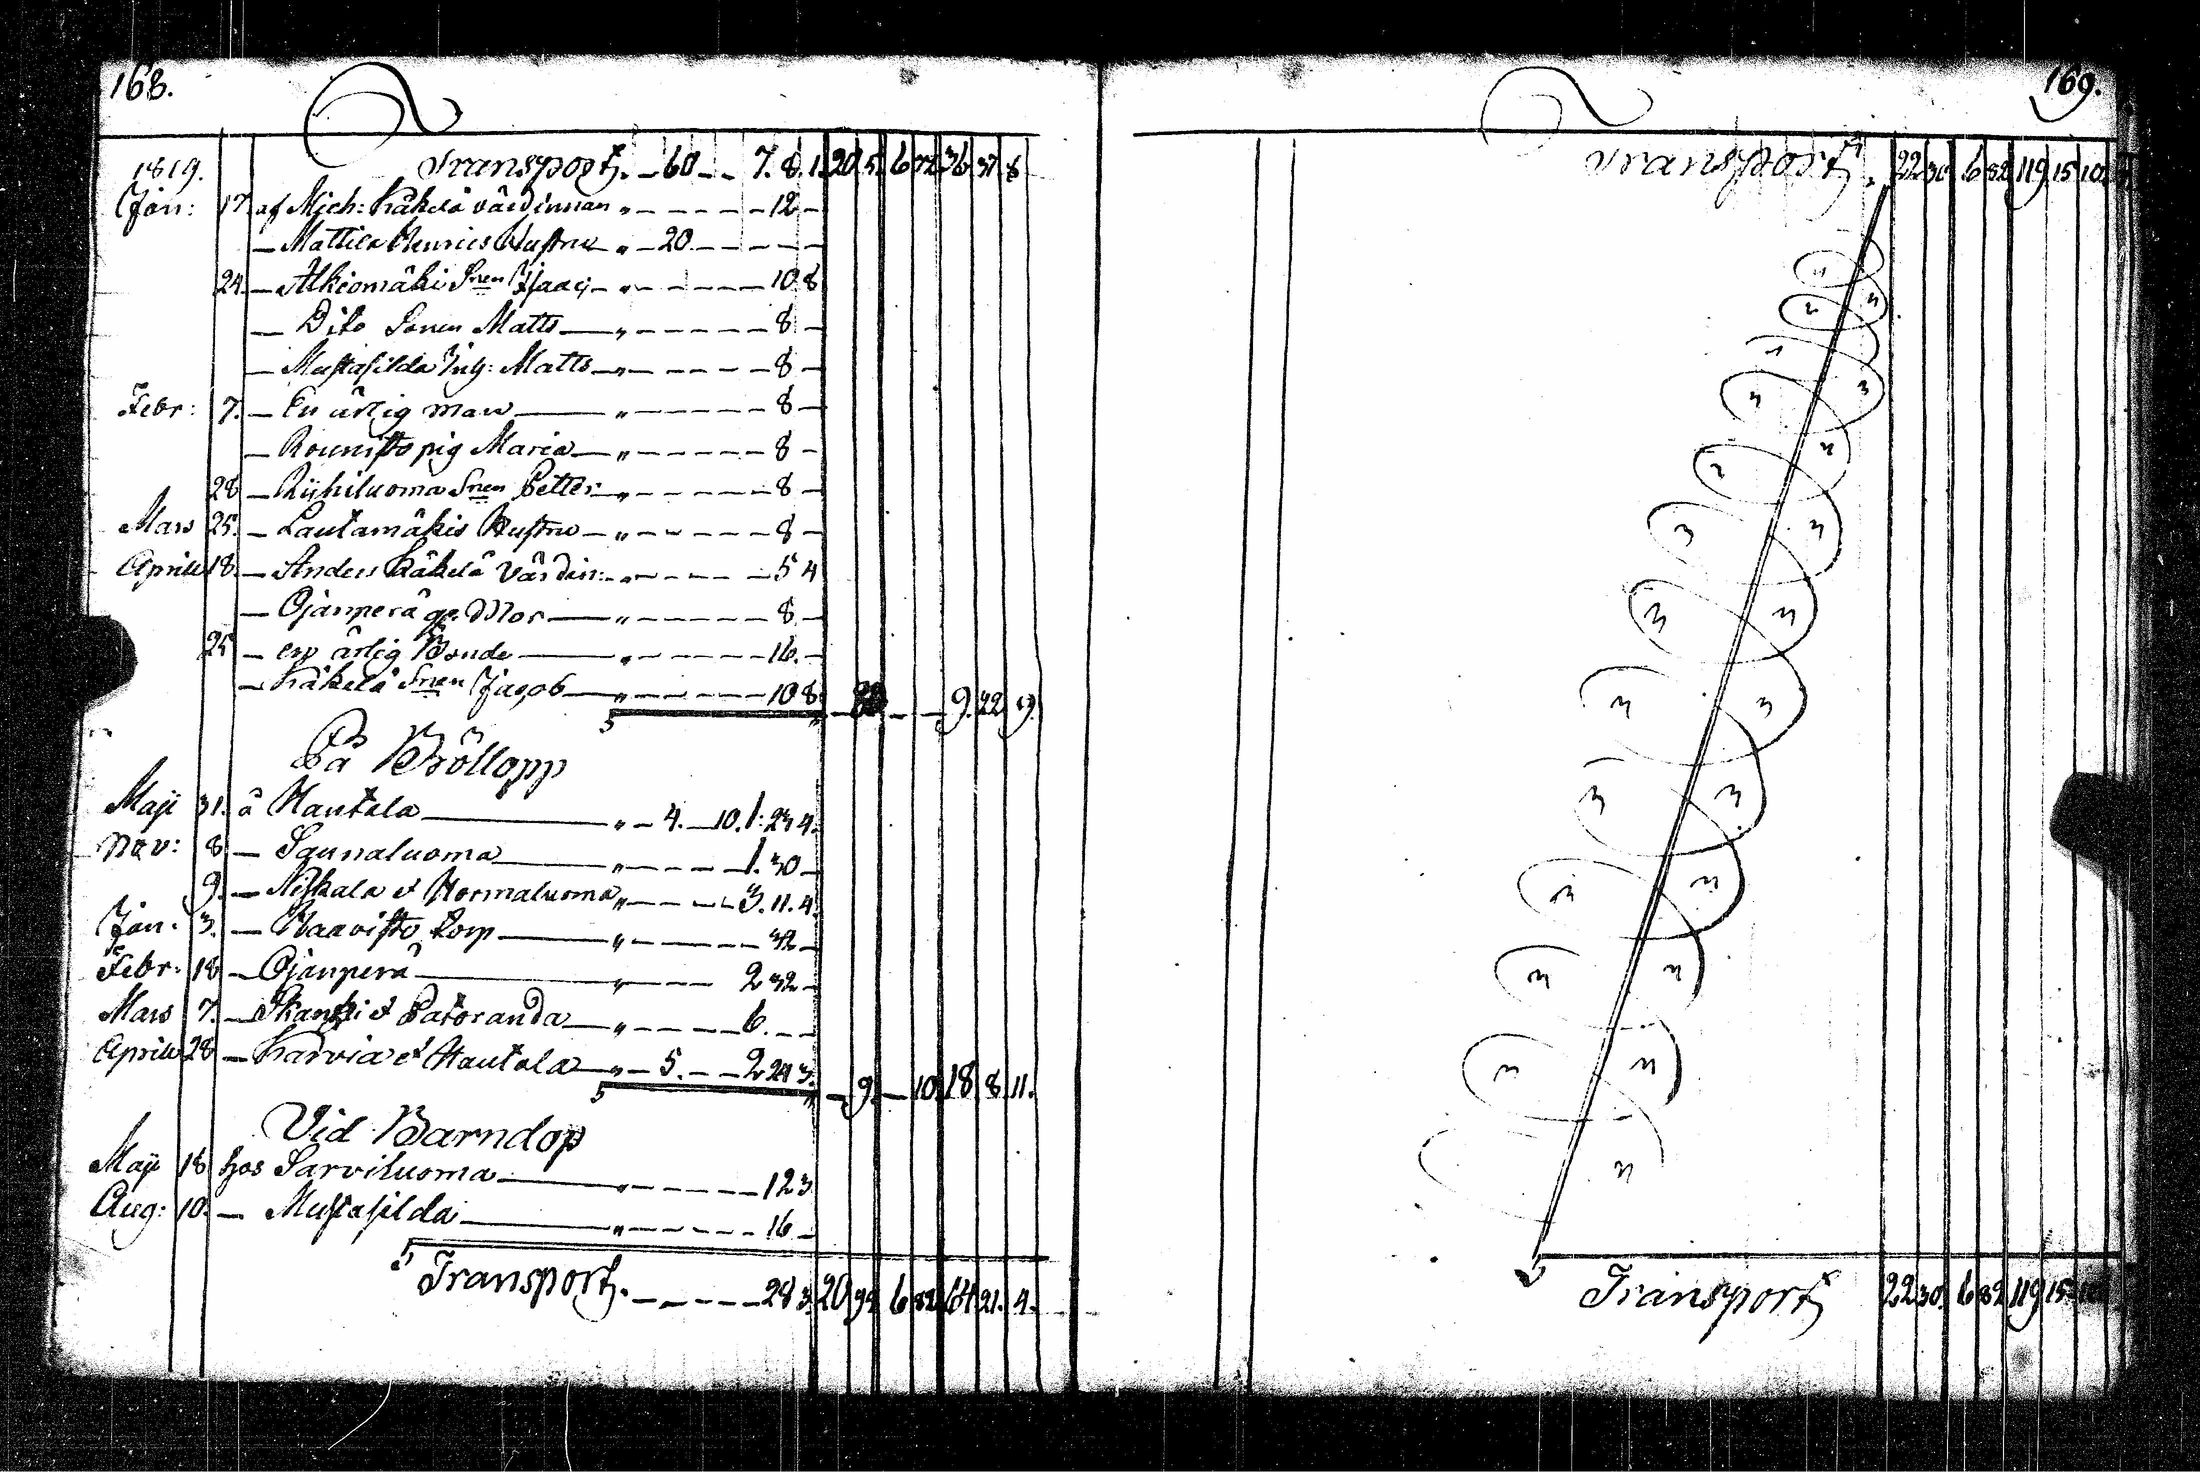 168.
1819. Transport. - 60 - - 7. 8. 1. 20 5. 6 72 36 37 8
Jan: 17. af Mich: Käkelä värdinnan " - - - - - 12 -
— Mattila Henrics Hustru " - 20 - - - - -
24. — Alkiomäki Snen Isaac - " - - - - - 10 8
— Dito Sonen Matts — " - - - - - 8 -
— Mustasilda Inh: Matts — " - - - - - 8 -
Febr: 7. — En ärlig man — " - - - - - 8 -
— Rounisto pig Maria — " - - - - - 8 -
28 — Riihiluoma Snen Petter " - - - - - 8 -
Mars 25. — Lautamäkis Hustru — " - - - - - 8 -
Aprill 18. — Anders Käkelä Värdin: " - - - - - 5 4
— Ojanperä ge. Mor — " - - - - - 8 -
25 — en ärlig Bonde — " - - - - - 16. -
— Käkelä Snen Jacob — " - - - - - 10 8 - - - 9. 22 9.
På Bröllopp
Maji 31. å Hautala — " - 4. - 10. 1: 23 4.
Nov: 8 — Saunaluoma — " - - - - 1. 30 -
9. — Niskala et Normaluoma " - - - - 3. 11. 4
Jan: 3. — Haavisto torp — " - - - - - 32 -
Febr: 18 — Ojanperä — " - - - - 2 32 -
Mars 7. — Skantzi et Patoranda — " - - - - 6. - -
Aprill 28 — Karvia et Hautala — " - 5. - - 2 24 3. - 9. - 10. 18 8 11.
Vid Barndop
Maji 18 hos Sarviluoma — " - - - - - 12 3
Aug: 10. — Mustasilda — " - - - - - 16 -
Transport. - - - - - 28 3. 20 94 6 82 64 21. 4.
169.
Transport. 22 30 6 82 119 15 10
Transport 22 30. 6 82 119 15